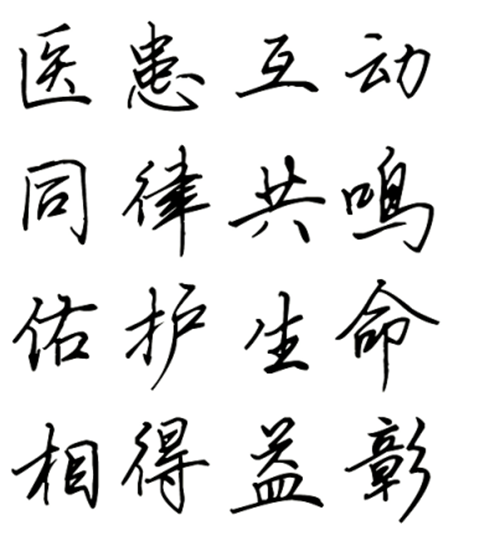 医患互动
同律共鸣
佑护生命
相得益彰